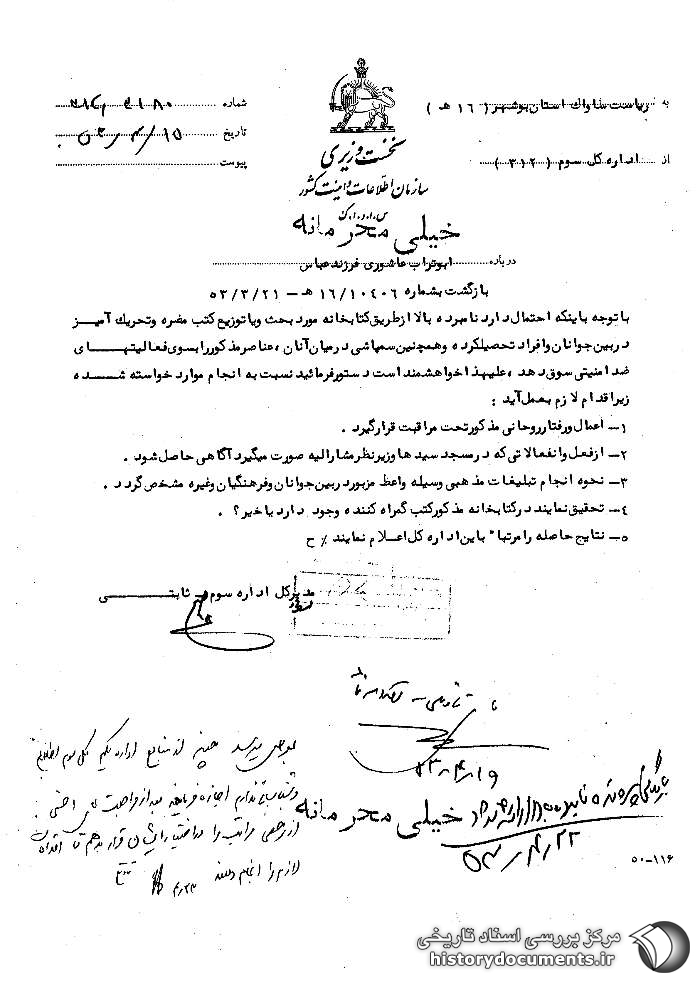 به ریاست ساواک استان بوشهر ( ۱۶ هـ )
از اداره کل سوم ( ۳۱۲ )
شماره
تاریخ ۵۳/۴/۱۵
پیوست
نخست وزیری
سازمان اطلاعات و امنیت کشور
س.ا.و.ا.ک
خیلی محرمانه
درباره ابوتراب عاشوری فرزند عباس
بازگشت بشماره ۱۶/۱۰۴۰۶ هـ – ۵۳/۳/۲۱
با توجه باینکه احتمال دارد نامبرده بالا از طریق کتابخانه مورد بحث و یا توزیع کتب مضره و تحریک آمیز
در بین جوانان و افراد تحصیلکرده و همچنین سمپاشی در میان آنان ، عناصر مذکور را بسوی فعالیتهای
ضد امنیتی سوق دهد ، علیهذا خواهشمند است دستور فرمائید نسبت به انجام موارد خواسته شده
زیر اقدام لازم بعمل آید :
۱– اعمال و رفتار روحانی مذکور تحت مراقبت قرار گیرد .
۲– از فعل و انفعالاتی که در مسجد سیدها و زیر نظر مشارالیه صورت میگیرد آگاهی حاصل شود .
۳– نحوه انجام تبلیغات مذهبی وسیله واعظ مزبور در بین جوانان و فرهنگیان و غیره مشخص گردد .
۴– تحقیق نمایند در کتابخانه مذکور کتب گمراه کننده وجود دارد یا خیر؟ .
۵– نتایج حاصله را مرتبا" باین اداره کل اعلام نمایند ٪ ح
مدیر کل اداره سوم – ثابتی
۵۳/۴/۱۹
خیلی محرمانه
۵۳/۴/۲۲
لازم را انجام دهند ۴/۲۳
۵۰-۱۱۶
مرکز بررسی اسناد تاریخی
historydocuments.ir